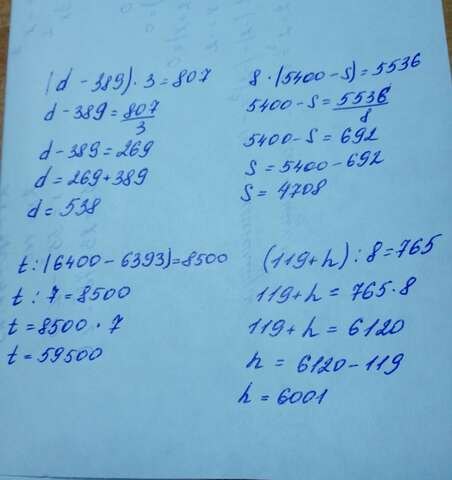 (d - 389) · 3 = 807
d - 389 = 807/3
d - 389 = 269
d = 269 + 389
d = 538
8 · (5400 - s) = 5536
5400 - s = 5536/8
5400 - s = 692
s = 5400 - 692
s = 4708
t : (6400 - 6393) = 8500
t : 7 = 8500
t = 8500 · 7
t = 59500
(119 + h) : 8 = 765
119 + h = 765 · 8
119 + h = 6120
h = 6120 - 119
h = 6001